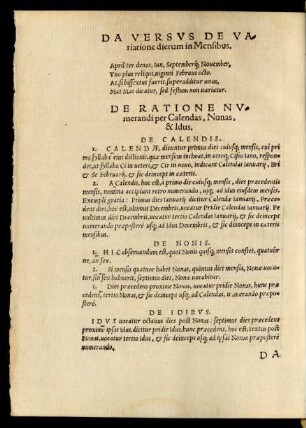 DA VERSVS DE VA
riatione dierum in Mensibus.
April ter denos, Iun, Septemberq́;, Nouember,
Vno plus reliqui, uiginti Februus octo.
At si bissextus fuerit, superadditur unus,
Mat Mat dicatur, sed festum non uariatur.
DE RATIONE NV
merandi per Calendas, Nonas,
& Idus.
DE CALENDIS.
1. CALENDÆ, dicuntur primus dies cuiusq; mensis, cui pri
ma syllaba eius dictionis, quæ mensem inchoat, in uetere Cisio Iano, respon-
det, ut syllaba Ci in uetere, & Cir in nouo, indicant Calendas Ianuarij, Bri
& Se Februarij, & sic deincept in cæteris.
2. A Calendis, hoc est, à primo die cuiusq; mensis, dies præcedentis
mensis, nomina accipiunt retro numerando, usq; ad idus eiusdem mensis.
Exempli gratia: Primus dies Ianuarij dicitur Calendæ Ianuarij, Præce-
dens dies, hoc est, ultimus Decembris, uocatur Pridie Calendas Ianuarij. Pe
nultimus dies Decembris, uocatur tertio Calendas Ianuarij, & sic deincept
numerando præpostere usq; ad Idus Decembris, & sic deincept in cæteris
mensibus.
DE NONIS.
1. HIC obseruandum est, quot Nonas quisq; mensis constet, quatuór-
ne, an sex.
2. Si mensis quatuor habet Nonas, quintus dies mensis, Nonæ uoca-
tur, sin sex habuerit, septimus dies, Nonæ uocabitur.
3. Dies præcedens proxime Nonas, uocatur pridie Nonas, hunc præ
cedens, tertio Nonas, & sic deincept usq; ad Calendas, numerando præpo
stere.
DE IDIBVS.
IDVS uocatur octauus dies post Nonas: septimus dies præcedens
proxime ipsas Idus, dicitur pridie Idus, hunc præcedens, hoc est, sextus post
Nonas, uocatur tertio Idus, & sic deincept usq; ad ipsas Nonas præpostere
numerando.
DA